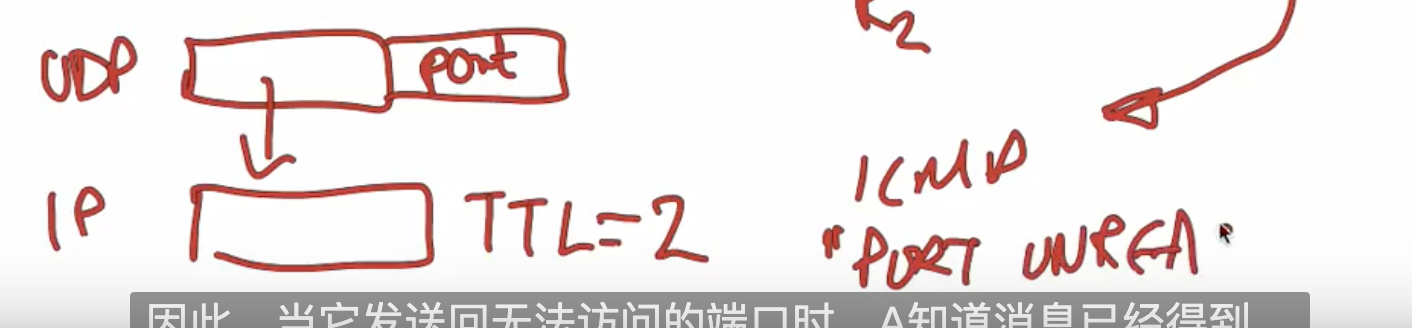 R2
UDP port
ICMP
IP TTL=2
"PORT UNREA
因此，当它发送回无法访问的端口时，A知道消息已经得到